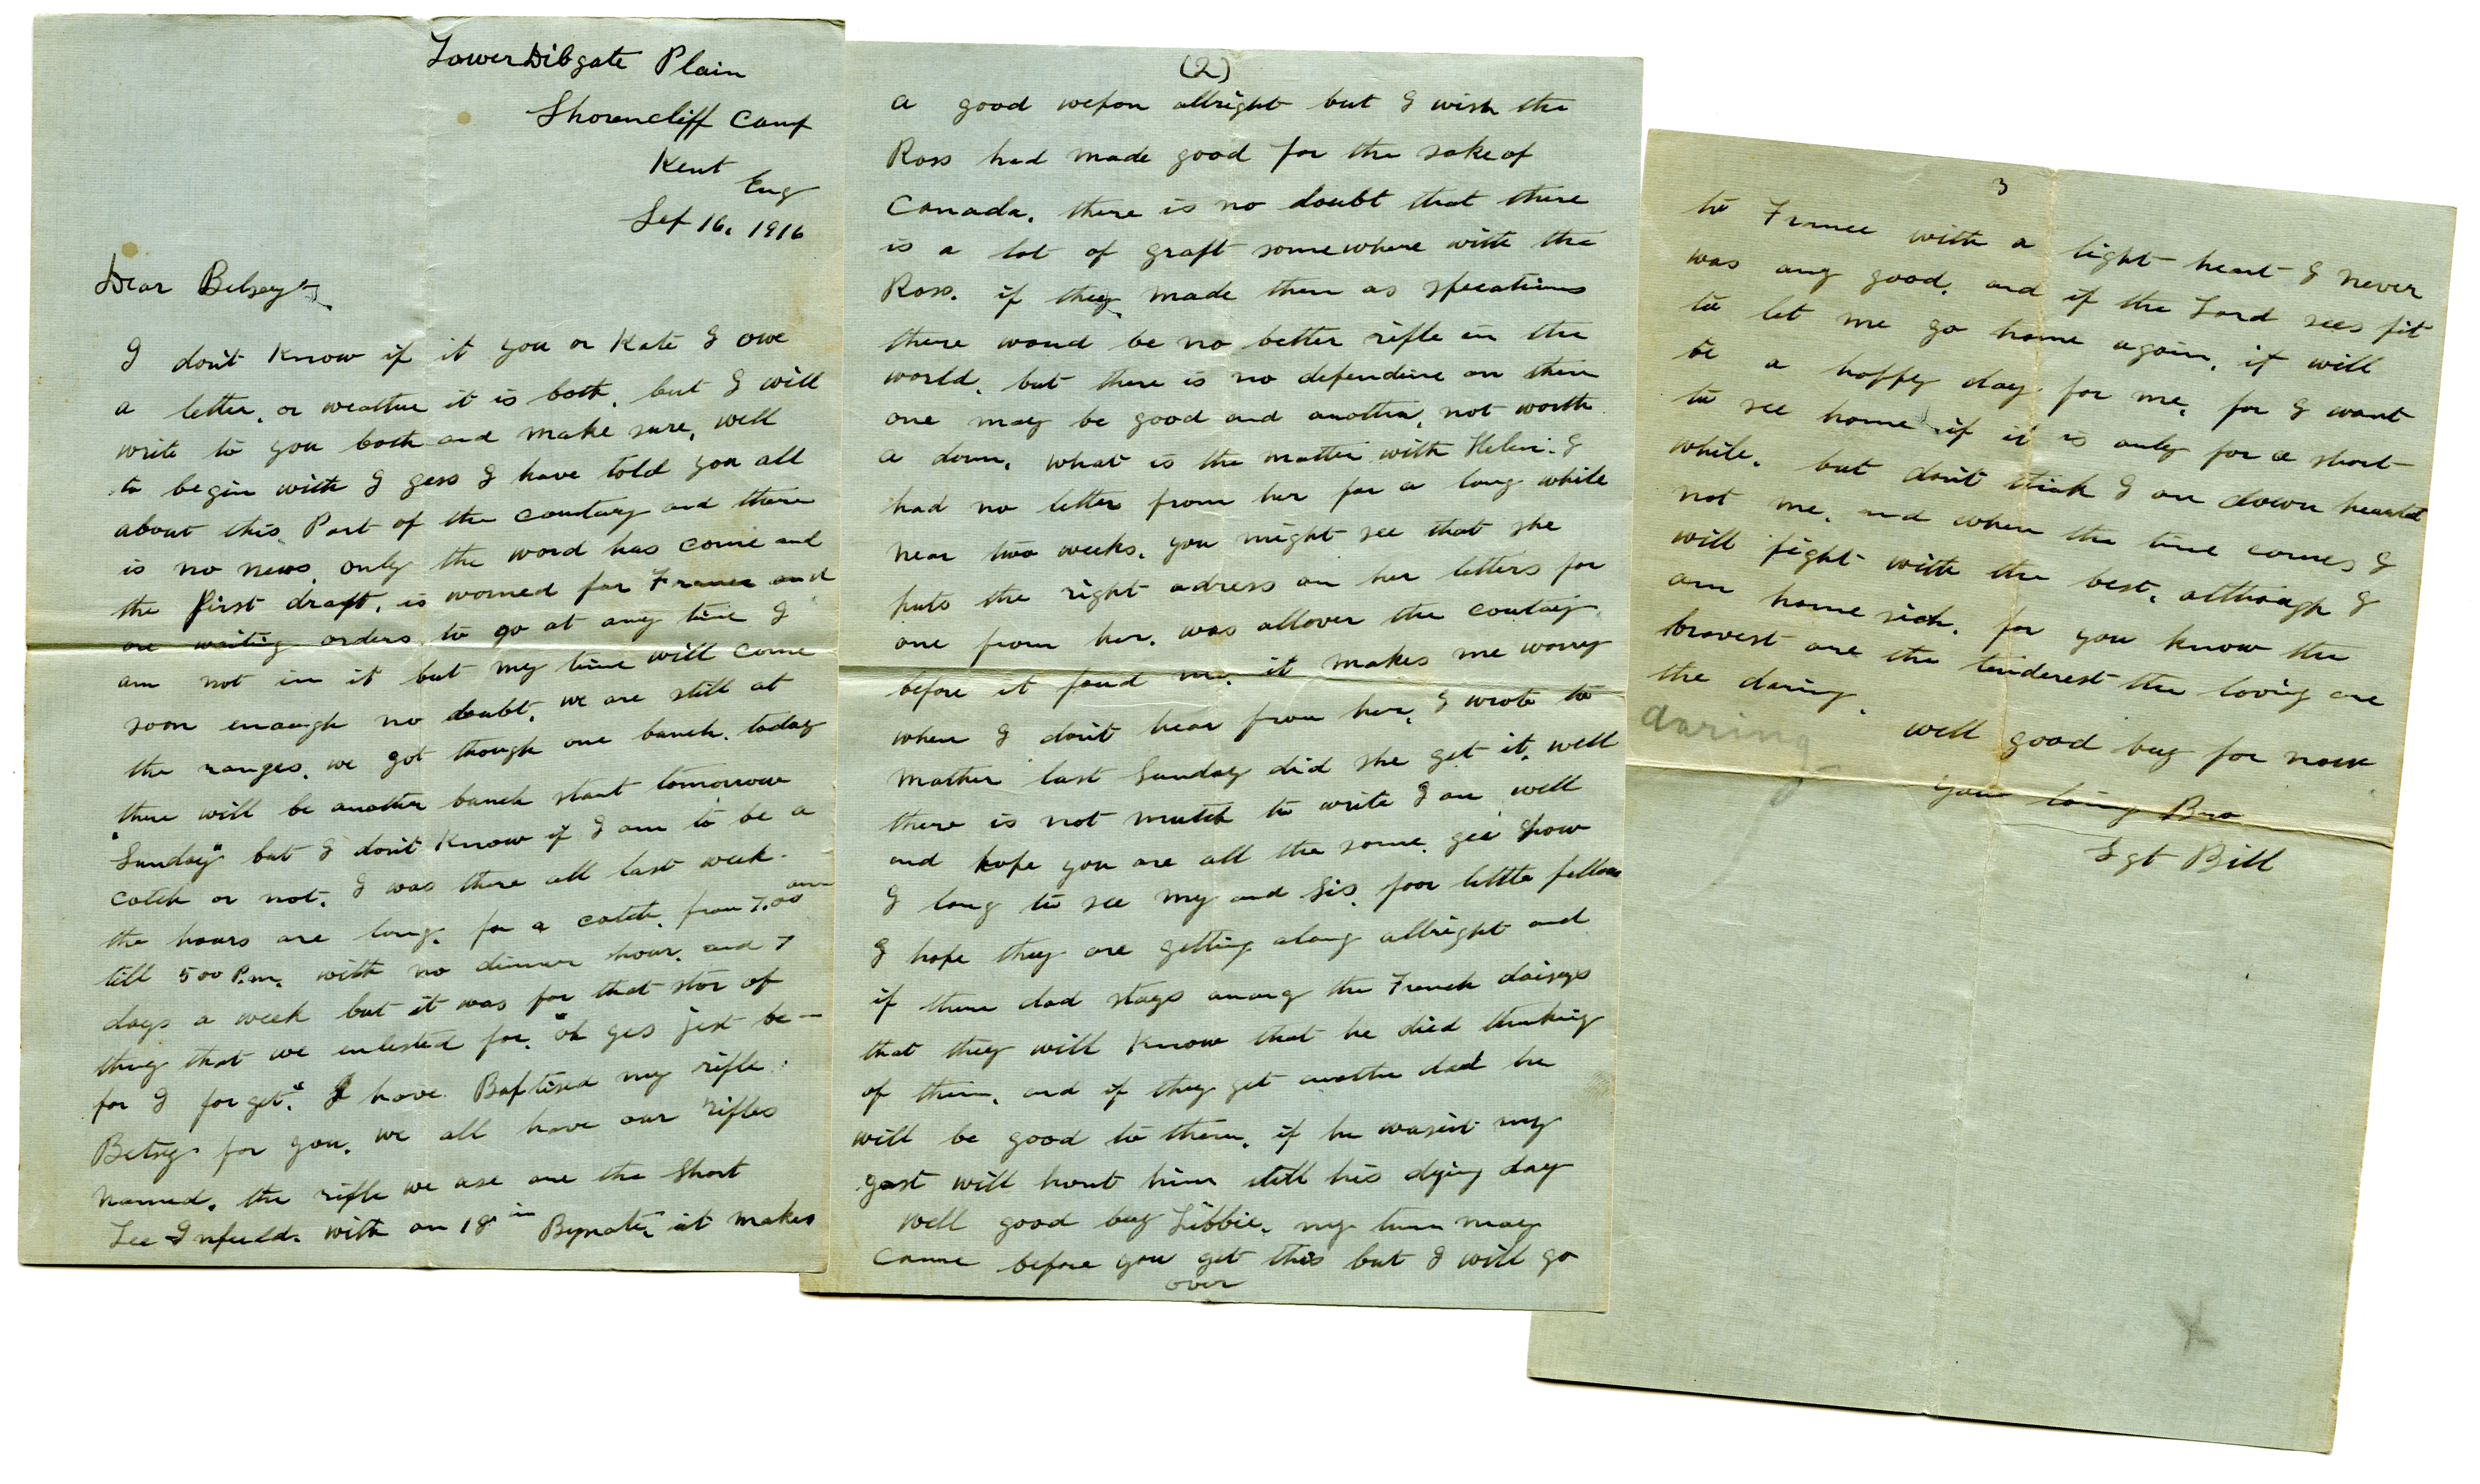 Lower Dibgate Plain
Shorencliff Camp
Kent
Eng
Sep 16. 1916
Dear Betsey
I don't know if it you or Kate I owe
a letter. or weather it is both. but I will
write to you both and make sure, well
to begin with I gess I have told you all
about this Part of the country and there
is no news. only the word has come and
the first draft. is worned for France and
are waiting orders to go at any time I
am not in it but my time will come
soon enough no doubt. we are still at
the ranges. we got though one bunch. today
there will be another bunch start tomorrow
"Sunday" but I don't know if I am to be a
catch or not. I was there all last week.
the hours are long. for a catch. from 7.00 am
till 5 00 P.m. with no dinner hour. and 7
days a week but it was for that stor of
thing that we enlested for. "oh yes jest be-
for I forget." I have Baptised my rifle
Betsy for you. we all have our rifles
named. the rifle we use are the Short
Lee Infeild. with an 18 in Bynate. it makes
(2)
a good wepon allright but I wish the
Ross had made good for the sake of
Canada. there is no doubt that there
is a lot of graft somewhere with the
Ross. if they made them as
there woud be no better rifle in the
world. but there is no on them
one may be good and another, not worth
a dam. what is the matter with Helen. I
had no letter from her for a long while
near two weeks. you might see that she
puts the right adress on her letters for
one from her. was allover the
before it foud me. it makes me worry
when I don't hear from her. I wrote to
mother last Sunday did she get it. well
there is not mutch to write I am well
and hope you are all the same. gee how
I long to see my and Sis. poor little fellows
I hope they are getting along allright and
if there dad stays among the French daisys
that they will know that he died thinking
of them. and if they get another dad he
will be good to them. if he wasen't my
gost will hont him still his dying day
Well good buy Libbie. my turn may
come before you get this but I will go
over
3
to France with a light heart I never
was any good. and if the Lord sees fit
to let me go home again. it will
be a happy day for me. for I want
to see home if it is only for a short
while. but don't think I am down hearted
not me. and when the time comes I
will fight with the best. although I
am home sick. for you know the
bravest are the tenderest the loving are
the daring.
daring
well good buy for now
your loving Bro
Sgt Bill